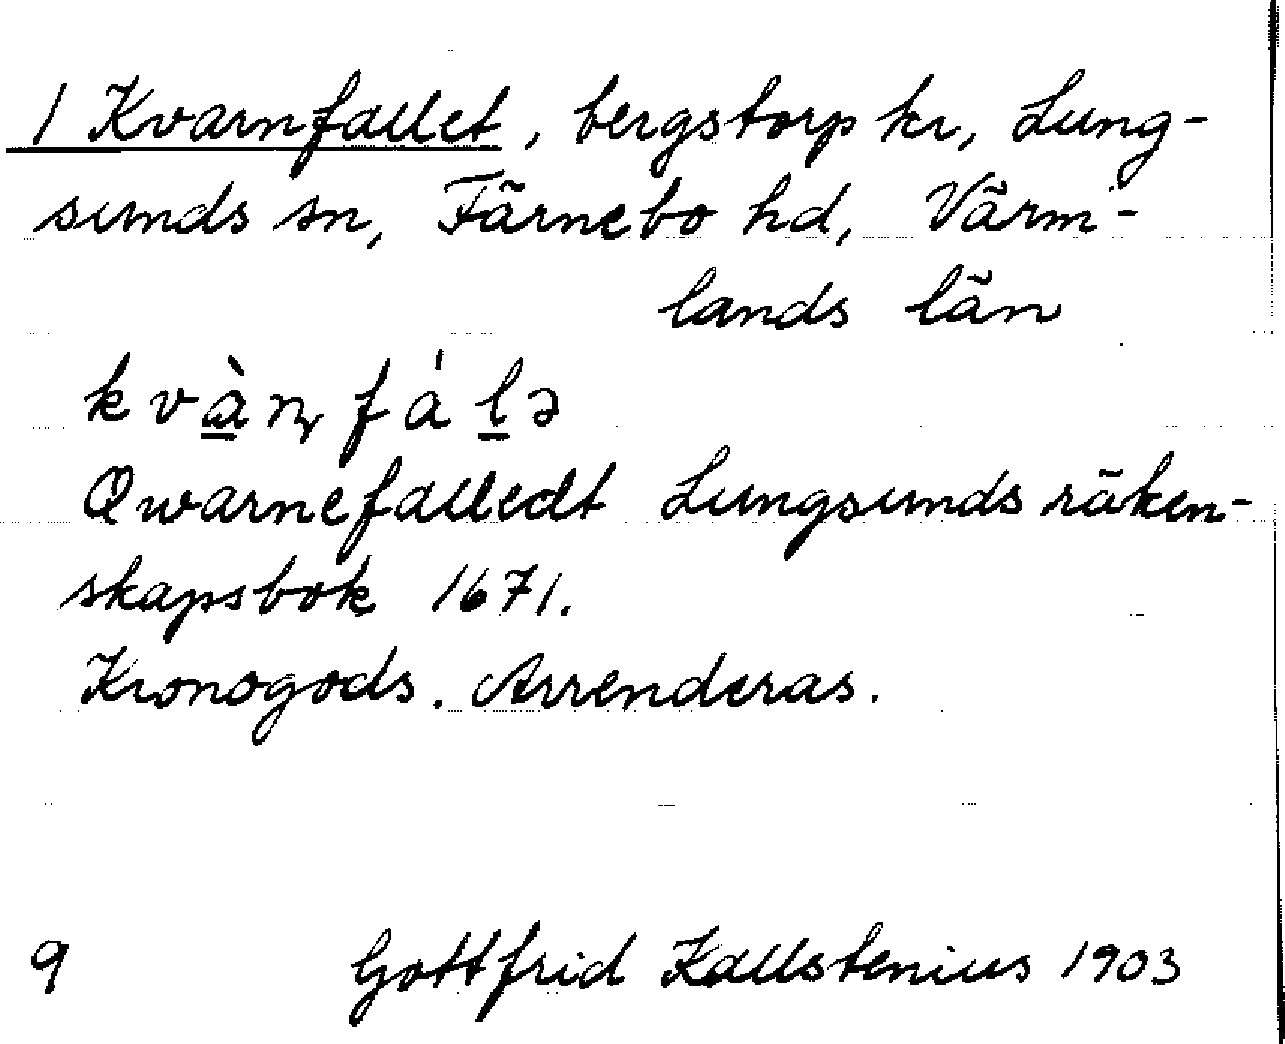 1 Kvarnfallet, bergstorp kr, Lung-
sunds sn, Färnebo hd, Värm-
lands län
kvàɳfálə
Qwarnefalledt Lungsunds räken-
skapsbok 1671.
Kronogods. Arrenderas.
9 Gottfrid Kallstenius 1903